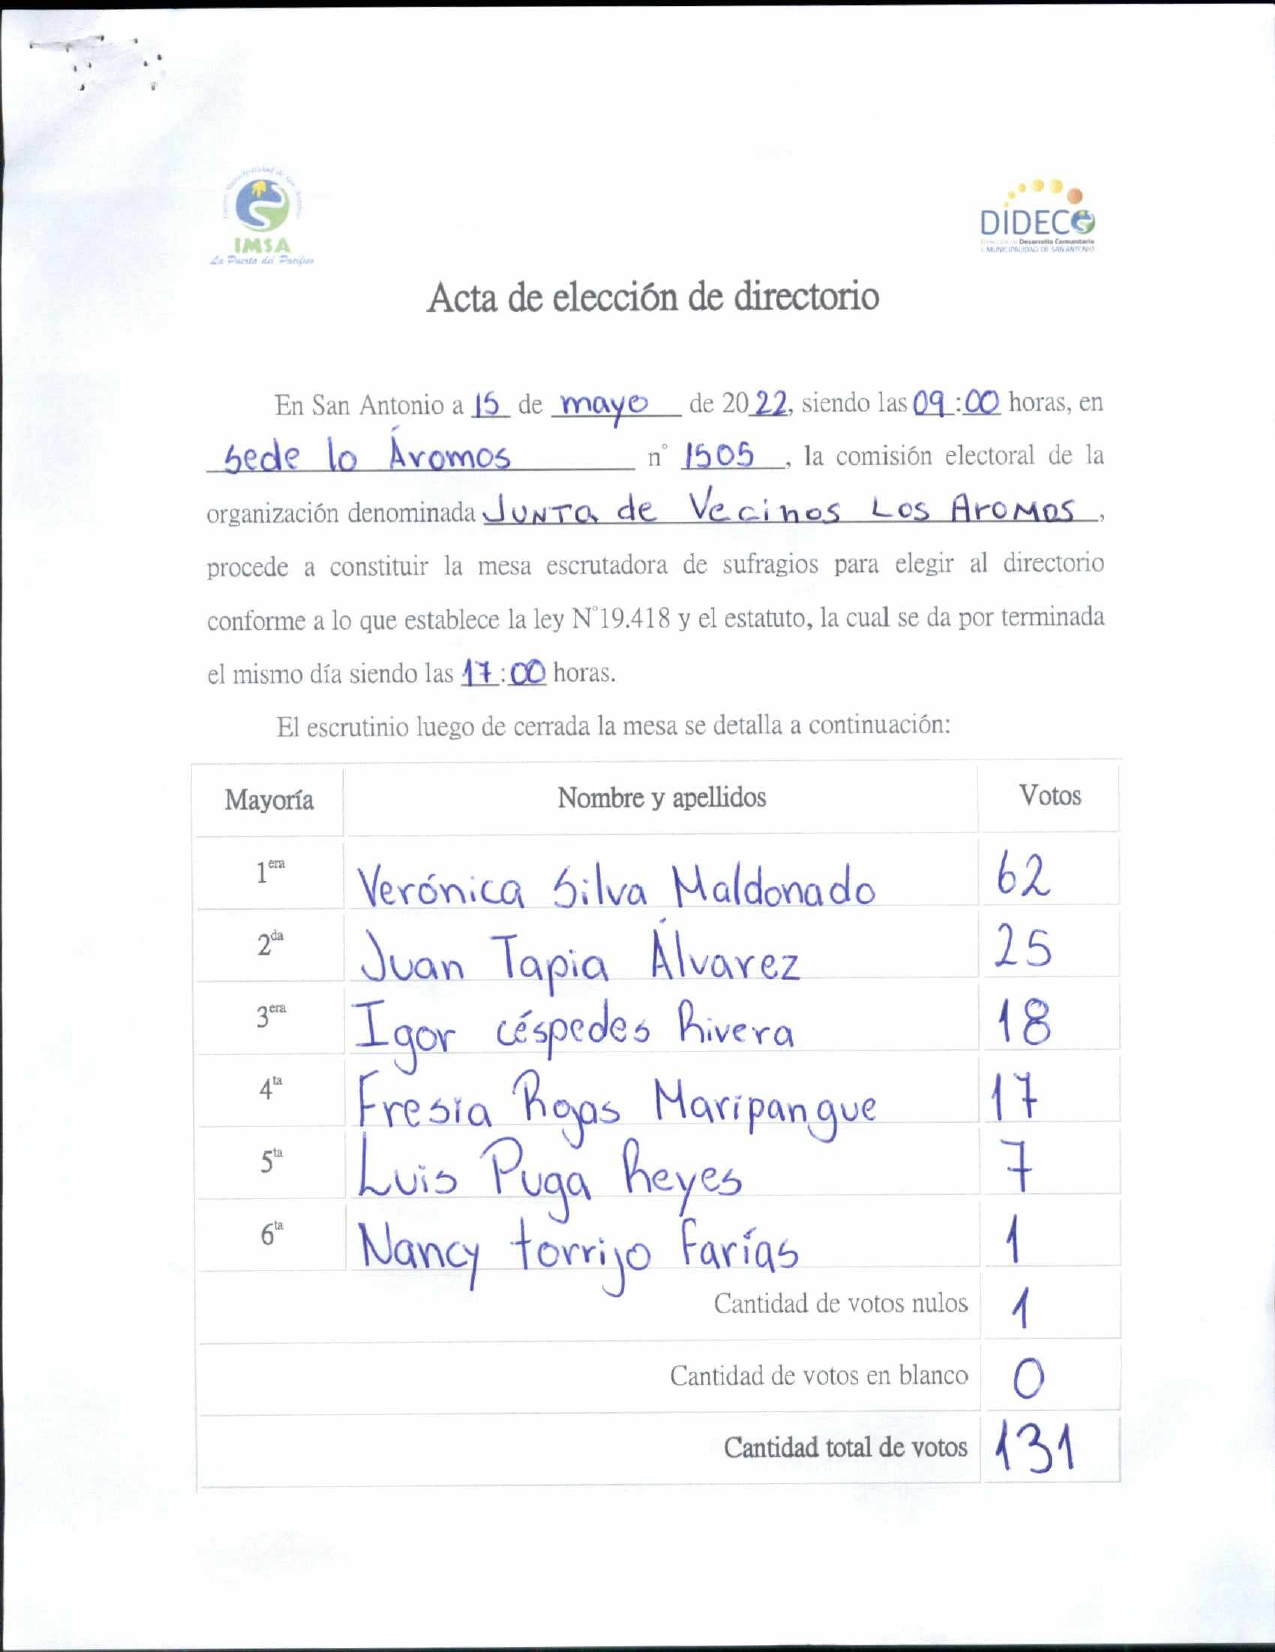 IMSA
La Puerta del Pacífico
DIDECO
Desarrollo Comunitario
I. MUNICIPALIDAD DE SAN ANTONIO
Acta de elección de directorio
En San Antonio a 15 de mayo de 2022, siendo las 09:00 horas, en
sede lo Áromos n° 1505, la comisión electoral de la
organización denominada JUNTa de Vecinos Los AroMos,
procede a constituir la mesa escrutadora de sufragios para elegir al directorio
conforme a lo que establece la ley N°19.418 y el estatuto, la cual se da por terminada
el mismo día siendo las 17:00 horas.
El escrutinio luego de cerrada la mesa se detalla a continuación:
Mayoría Nombre y apellidos Votos
1era Verónica Silva Maldonado 62
2da Juan Tapia Álvarez 25
3era Igor céspedes Rivera 18
4ta Fresia Rojas Maripangue 17
5ta Luis Puga Reyes 7
6ta Nancy torrijo Farías 1
Cantidad de votos nulos 1
Cantidad de votos en blanco 0
Cantidad total de votos 131